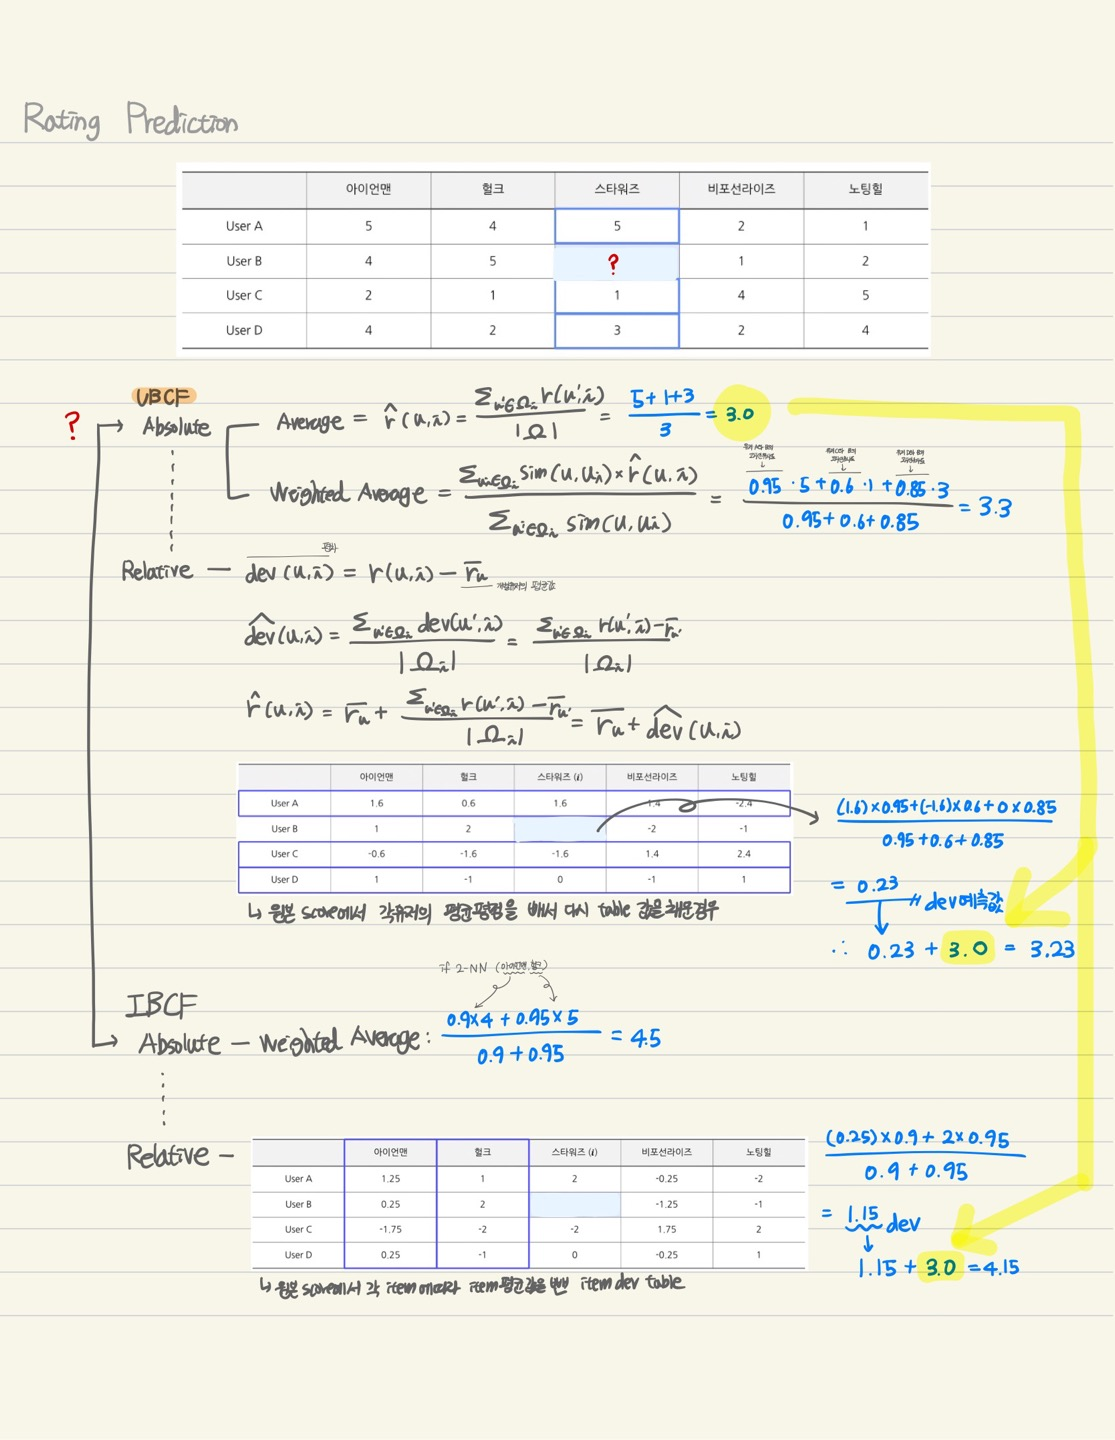 Rating Prediction
아이언맨 헐크 스타워즈 비포선라이즈 노팅힐
User A 5 4 5 2 1
User B 4 5 ? 1 2
User C 2 1 1 4 5
User D 4 2 3 2 4
UBCF
? Absolute Average = r̂(u,i) = Σu'∈Ωi r(u',i) / |Ω| = 5+1+3 / 3 = 3.0
Weighted Average = Σu'∈Ωi sim(u,ui) × r̂(u,i) / Σu'∈Ωi sim(u,ui) = 0.95·5+0.6·1+0.85·3 / 0.95+0.6+0.85 = 3.3
편차
Relative — dev(u,i) = r(u,i) − r̄u
개별유저의 평균값
dev̂(u,i) = Σu'∈Ωi dev(u',i) / |Ωi| = Σu'∈Ωi r(u',i) − r̄u' / |Ωi|
r̂(u,i) = r̄u + Σu'∈Ωi r(u',i) − r̄u' / |Ωi| = r̄u + dev̂(u,i)
아이언맨 헐크 스타워즈 (i) 비포선라이즈 노팅힐
User A 1.6 0.6 1.6 -1.4 -2.4
User B 1 2 -2 -1
User C -0.6 -1.6 -1.6 1.4 2.4
User D 1 -1 0 -1 1
(1.6)×0.95+(-1.6)×0.6+0×0.85 / 0.95+0.6+0.85
= 0.23 dev예측값
∴ 0.23 + 3.0 = 3.23
↳ 원본 score에서 각유저의 평균평점을 빼서 다시 table 값을 채운경우
if 2-NN (아이언맨, 헐크)
IBCF
Absolute — Weighted Average: 0.9×4 + 0.95×5 / 0.9+0.95 = 4.5
Relative —
아이언맨 헐크 스타워즈 (i) 비포선라이즈 노팅힐
User A 1.25 1 2 -0.25 -2
User B 0.25 2 -1.25 -1
User C -1.75 -2 -2 1.75 2
User D 0.25 -1 0 -0.25 1
(0.25)×0.9 + 2×0.95 / 0.9+0.95
= 1.15 dev
1.15 + 3.0 = 4.15
↳ 원본 score에서 각 item에따라 item평균값을 뺀 item dev table